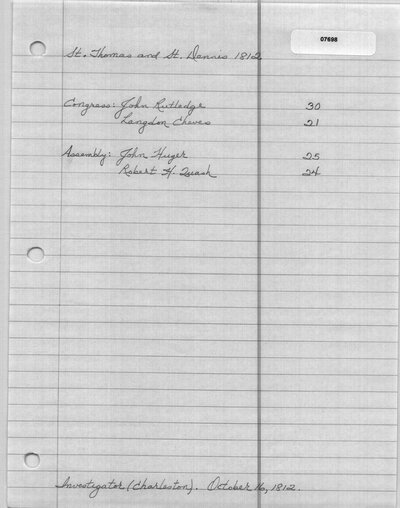 07698
St. Thomas and St. Dennis 1812
Congress: John Rutledge 30
Langdon Cheves 21
Assembly: John Huger 25
Robert H. Quash 24
Investigator (Charleston). October 16, 1812.